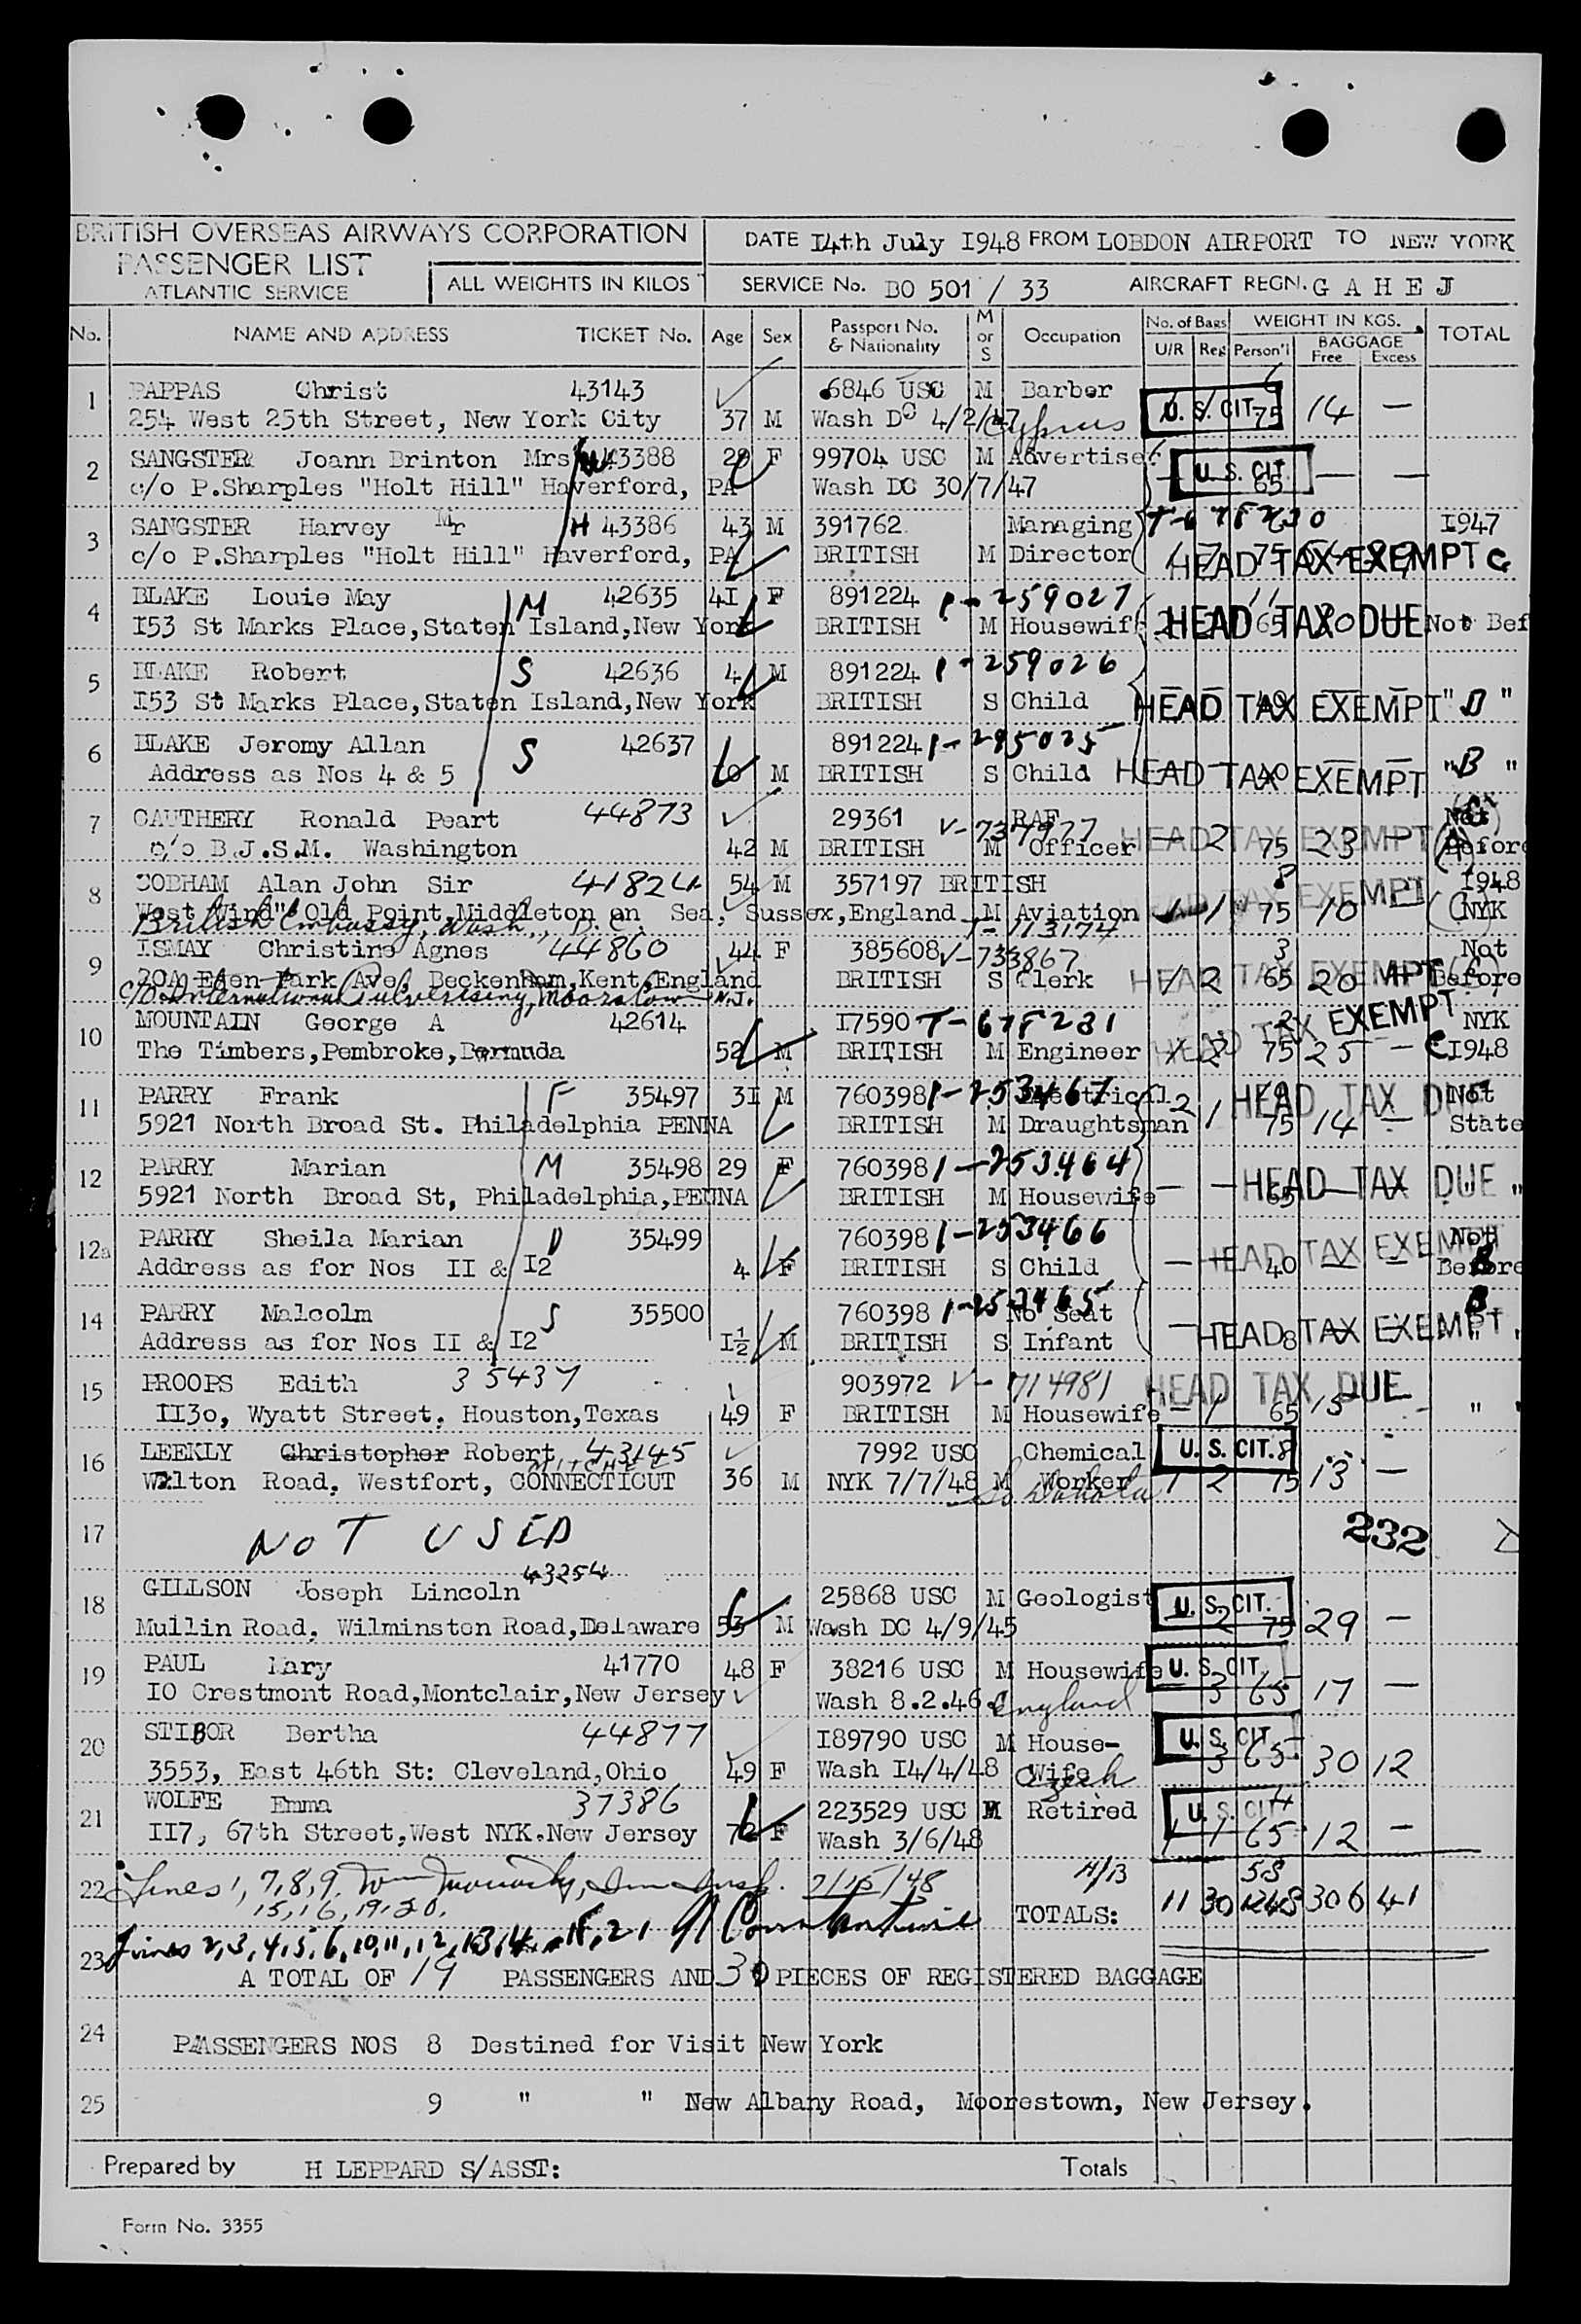 BRITISH OVERSEAS AIRWAYS CORPORATION
PASSENGER LIST
ATLANTIC SERVICE
ALL WEIGHTS IN KILOS
DATE I4th July I948 FROM LOBDON AIRPORT TO NEW YORK
SERVICE No. BO 501 / 33 AIRCRAFT REGN. G A H E J
No. NAME AND ADDRESS TICKET No. Age Sex Passport No. & Nationality M or S Occupation No. of Bags U/R Reg WEIGHT IN KGS. Person'l BAGGAGE Free Excess TOTAL
1 PAPPAS Christ 43143 6846 USC M Barber
254 West 25th Street, New York City 37 M Wash DC 4/2/47 Cyprus U. S. CIT. 75 14 —
2 SANGSTER Joann Brinton Mrs 43388 29 F 99704 USC M Advertiser
c/o P.Sharples "Holt Hill" Haverford, PA Wash DC 30/7/47 U. S. CIT. 65 — —
3 SANGSTER Harvey Mr H 43386 43 M 391762 Managing I947
c/o P.Sharples "Holt Hill" Haverford, PA BRITISH M Director HEAD TAX EXEMPT C
4 BLAKE Louie May M 42635 4I F 891224 1-259027
I53 St Marks Place,Staten Island,New York BRITISH M Housewife HEAD TAX DUE Not Bef
5 BLAKE Robert S 42636 4 M 891224 1-259026
I53 St Marks Place,Staten Island,New York BRITISH S Child HEAD TAX EXEMPT " B "
6 BLAKE Jeromy Allan S 42637 891224
Address as Nos 4 & 5 M BRITISH S Child HEAD TAX EXEMPT "B "
7 CAUTHERY Ronald Peart 44873 29361 V-737977 RAF Not
c/o B.J.S.M. Washington 42 M BRITISH M Officer HEAD TAX EXEMPT — 2 75 23 — Before
8 COBHAM Alan John Sir 41824 54 M 357197 BRITISH HEAD TAX EXEMPT I948
West Wind" Old Point,Middleton on Sea, Sussex,England M Aviation 1 75 10 — (C) NYK
British Embassy, Wash., D.C.
9 ISMAY Christine Agnes 44860 44 F 385608 V-733867 3 Not
Eden Park Ave, Beckenham,Kent,England BRITISH S Clerk HEAD TAX EXEMPT 1 2 65 20 Before
c/o International Pulverising, Moorestown N.J.
10 MOUNTAIN George A 42614 I7590 T-678231 NYK
The Timbers,Pembroke,Bermuda 52 M BRITISH M Engineer HEAD TAX EXEMPT 75 25 — C I948
11 PARRY Frank F 35497 3I M 760398 1-253467 Electrical HEAD TAX DUE Not
5921 North Broad St. Philadelphia PENNA BRITISH M Draughtsman 2 1 75 14 — State
12 PARRY Marian M 35498 29 F 760398 1-253464
5921 North Broad St, Philadelphia,PENNA BRITISH M Housewife — — 65 HEAD TAX DUE "
12a PARRY Sheila Marian D 35499 760398 1-253466 Not
Address as for Nos II & I2 4 F BRITISH S Child — HEAD TAX EXEMPT 40 B Before
14 PARRY Malcolm S 35500 760398 1-253465 No Seat B
Address as for Nos II & I2 I½ M BRITISH S Infant — HEAD TAX EXEMPT 8 "
15 PROOPS Edith 35437 903972 V-714981 HEAD TAX DUE
II3o, Wyatt Street, Houston,Texas 49 F BRITISH M Housewife — 1 65 15 "
16 LEEKLY Christopher Robert 43145 7992 USC Chemical U. S. CIT. 8
MITCHELL
Wilton Road, Westfort, CONNECTICUT 36 M NYK 7/7/48 M Worker So Dakota 1 2 75 13 —
17 NOT USED 232
43254
18 GILLSON Joseph Lincoln 25868 USC M Geologist U. S. CIT.
Mullin Road, Wilminston Road,Delaware 53 M Wash DC 4/9/45 2 75 29 —
19 PAUL Mary 41770 48 F 38216 USC M Housewife U. S. CIT.
IO Crestmont Road,Montclair,New Jersey Wash 8.2.46 England 3 65 17 —
20 STIBOR Bertha 44877 I89790 USC M House- U. S. CIT.
3553, East 46th St: Cleveland,Ohio 49 F Wash I4/4/48 Wife Czech 3 65 30 12
21 WOLFE Emma 37386 223529 USC M Retired U. S. CIT. 4
II7, 67th Street,West NYK.New Jersey 72 F Wash 3/6/48 1 1 65 12 —
22 Lines 1, 7, 8, 9, 7/15/48 H/B 58
15, 16, 19, 20. TOTALS: 11 30 1248 306 41
23 Lines 2, 3, 4, 5, 6, 10, 11, 12, 13, 14, 18, 21
A TOTAL OF 19 PASSENGERS AND 30 PIECES OF REGISTERED BAGGAGE
24 PASSENGERS NOS 8 Destined for Visit New York
25 9 " " New Albany Road, Moorestown, New Jersey.
Prepared by H LEPPARD S/ASST: Totals
Form No. 3355